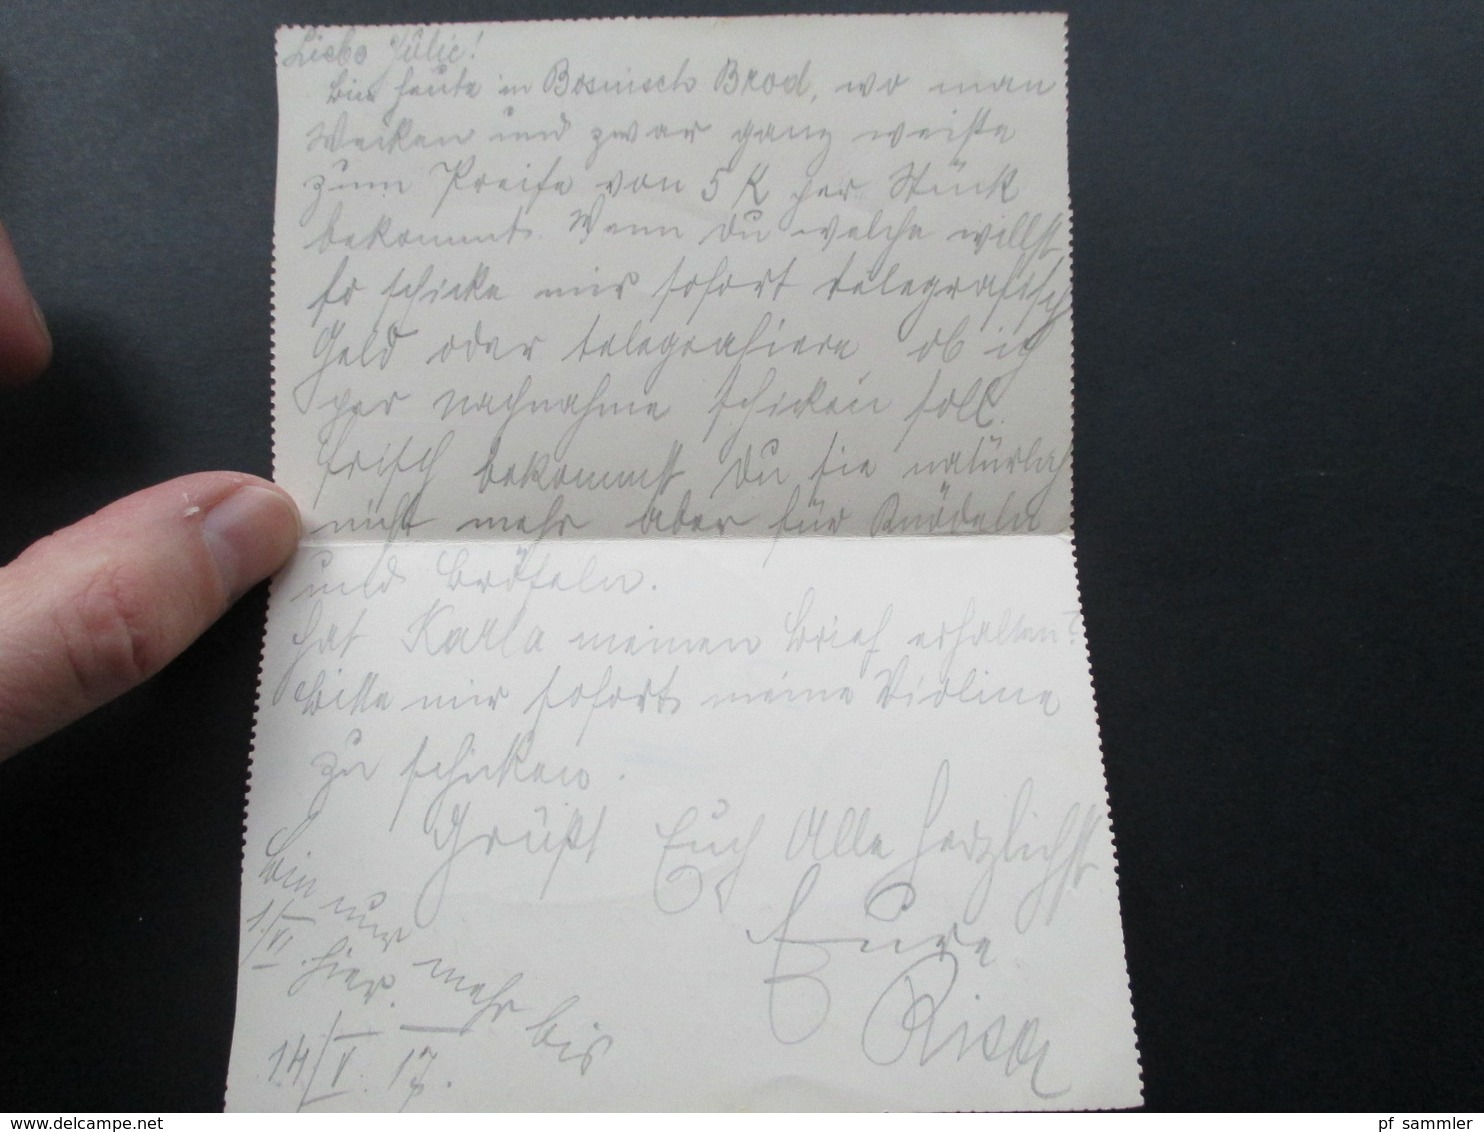 Liebe Julie!
Bin heute in Bosnisch Brod, wo man
Wecken und zwar ganz weiße
zum Preise von 5 K per Stück
bekommt. Wenn Du welche willst
so schicke mir sofort telegrafisch
Geld oder telegrafiere ob ich
per Nachnahme schicken soll.
Frisch bekommst Du sie natürlich
nicht mehr aber für Knödeln
und Bröseln.
Hat Karla meinen Brief erhalten?
Bitte mir sofort meine Violine
zu schicken.
Grüßt Euch Alle herzlichst
Eure
Risa
Bin nur mehr bis
1./VI. hier.
14/V. 17.
www.delcampe.net
pf_sammler